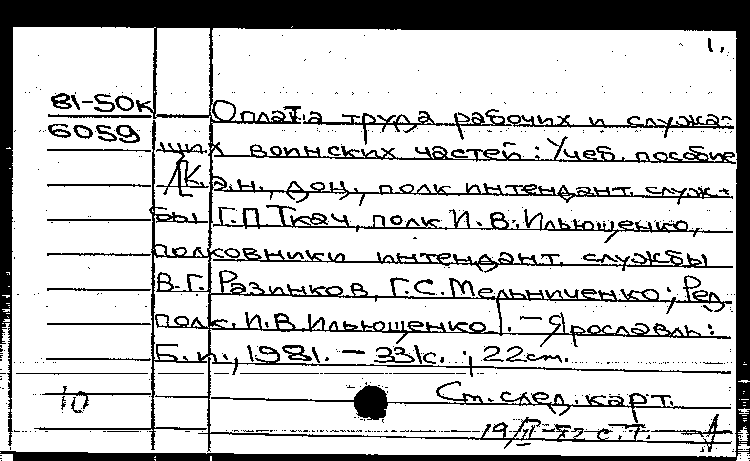 1.
81-50к Оплата труда рабочих и служа-
6059 щих воинских частей: Учеб. пособие
/К.э.н., доц., полк интендант. служ-
бы Г.П Ткач, полк И.В. Ильющенко,
полковники интендант. службы
В.Г. Разинков, Г.С. Мельниченко; Ред.
полк. И.В Ильющенко/. – Ярославль:
Б.и., 1981. – 331с.; 22см.
10 См. след. карт.
19/II-82 с.т.